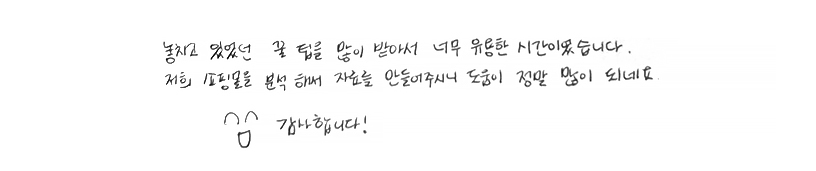 놓치고 있었던 꿀 팁을 많이 받아서 너무 유용한 시간이였습니다.
저희 쇼핑몰을 분석 해서 자료를 만들어주시니 도움이 정말 많이 되네요.
감사합니다!